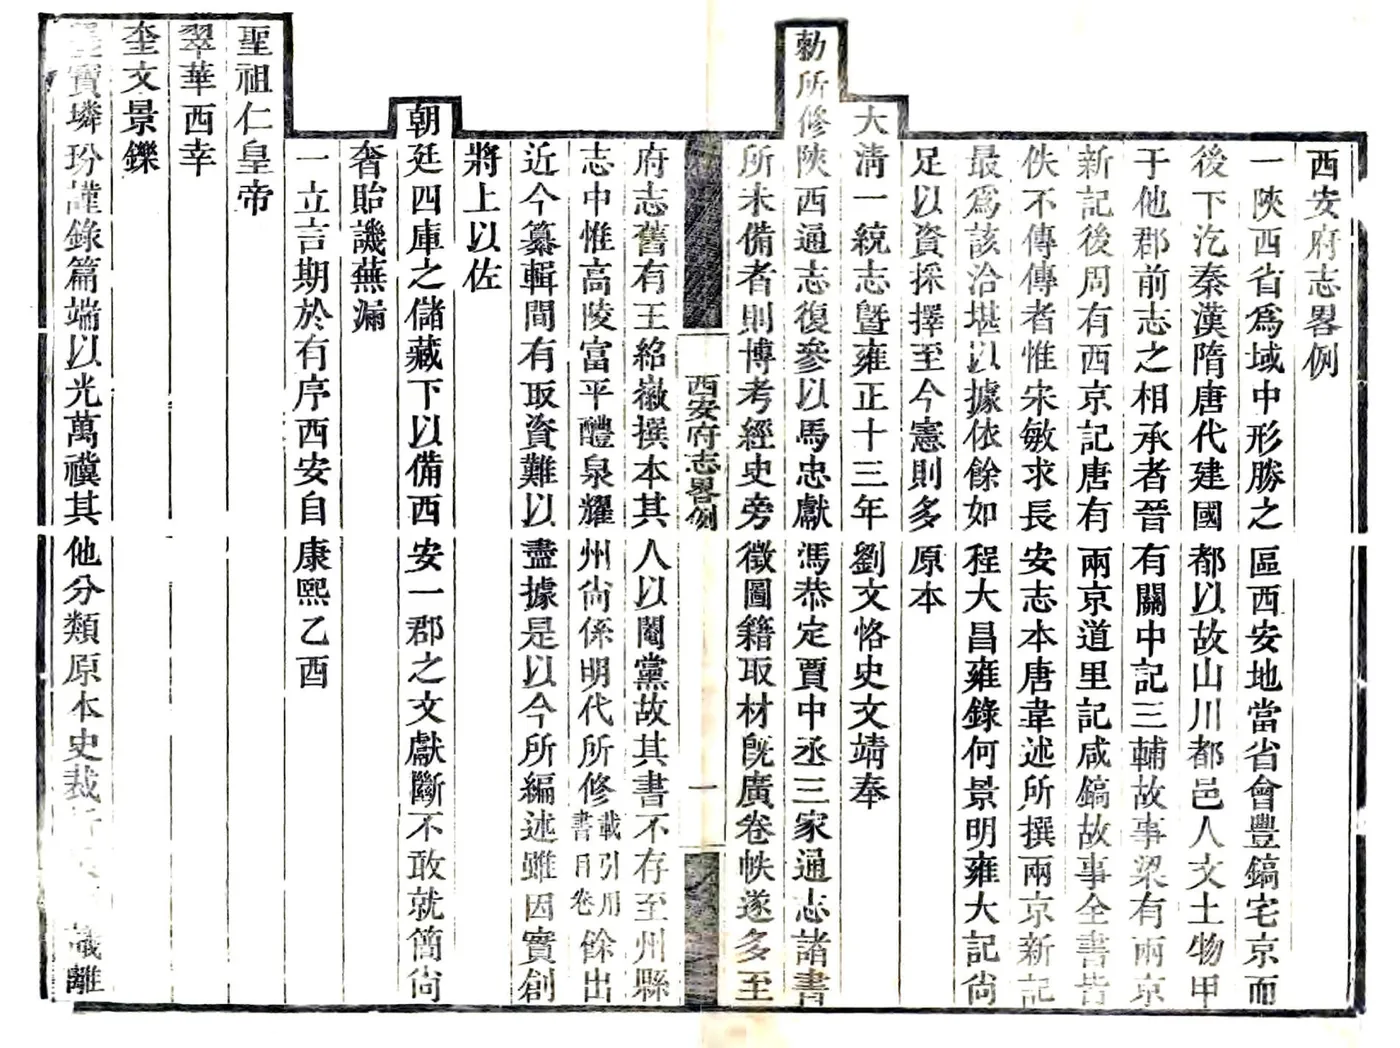 西安府志畧例
一陝西省爲域中形勝之區西安地當省會豐鎬宅京而
後下汔秦漢隋唐代建國都以故山川都邑人文土物甲
于他郡前志之相承者晉有關中記三輔故事梁有兩京
新記後周有西京記唐有兩京道里記咸鎬故事全書皆
佚不傳傳者惟宋敏求長安志本唐韋述所撰兩京新記
最爲該洽堪以據依餘如程大昌雍錄何景明雍大記尙
足以資採擇至今憲則多原本
大淸一統志曁雍正十三年劉文恪史文靖奉
勅所修陝西通志復參以馬忠獻馮恭定賈中丞三家通志諸書
所未備者則博考經史旁徵圖籍取材旣廣卷帙遂多至
西安府志畧例
一
府志舊有王紹徽撰本其人以閹黨故其書不存至州縣
志中惟高陵富平醴泉耀州尙係明代所修載引用書目卷餘出
近今纂輯間有取資難以盡據是以今所編述雖因實創
將上以佐
朝廷四庫之儲藏下以備西安一郡之文獻斷不敢就簡尙
奢貽譏蕪漏
一立言期於有序西安自康熙乙酉
聖祖仁皇帝
翠華西幸
奎文景鑠
寶璘玢謹錄篇端以光萬禩其他分類原本史裁離